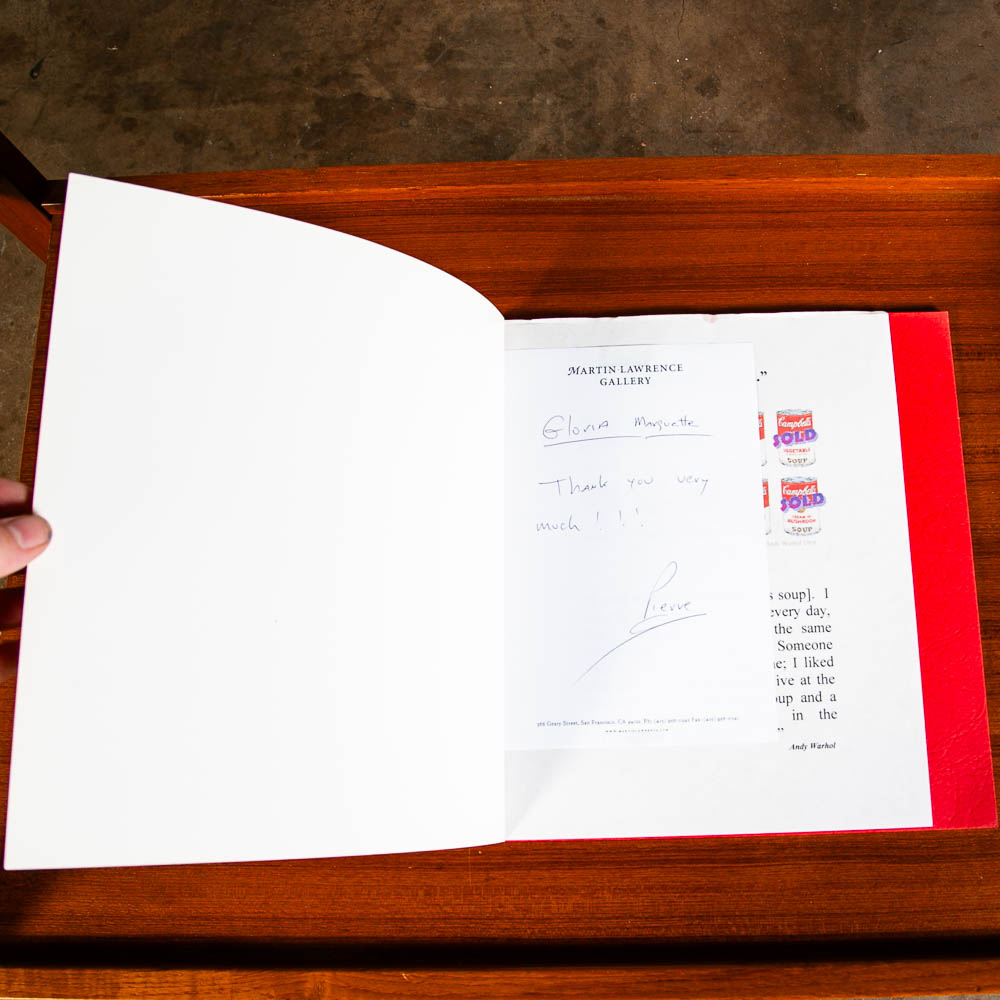 MARTIN LAWRENCE
GALLERY
Gloria Marquette
Thank you very
much ! ! !
Pierre
366 Geary Street, San Francisco, CA 94102
."
Campbell's
SOLD
VEGETABLE
SOUP
Campbell's
SOLD
CREAM OF
MUSHROOM
SOUP
s soup]. I
every day,
the same
Someone
ne; I liked
ive at the
oup and a
in the
"
Andy Warhol